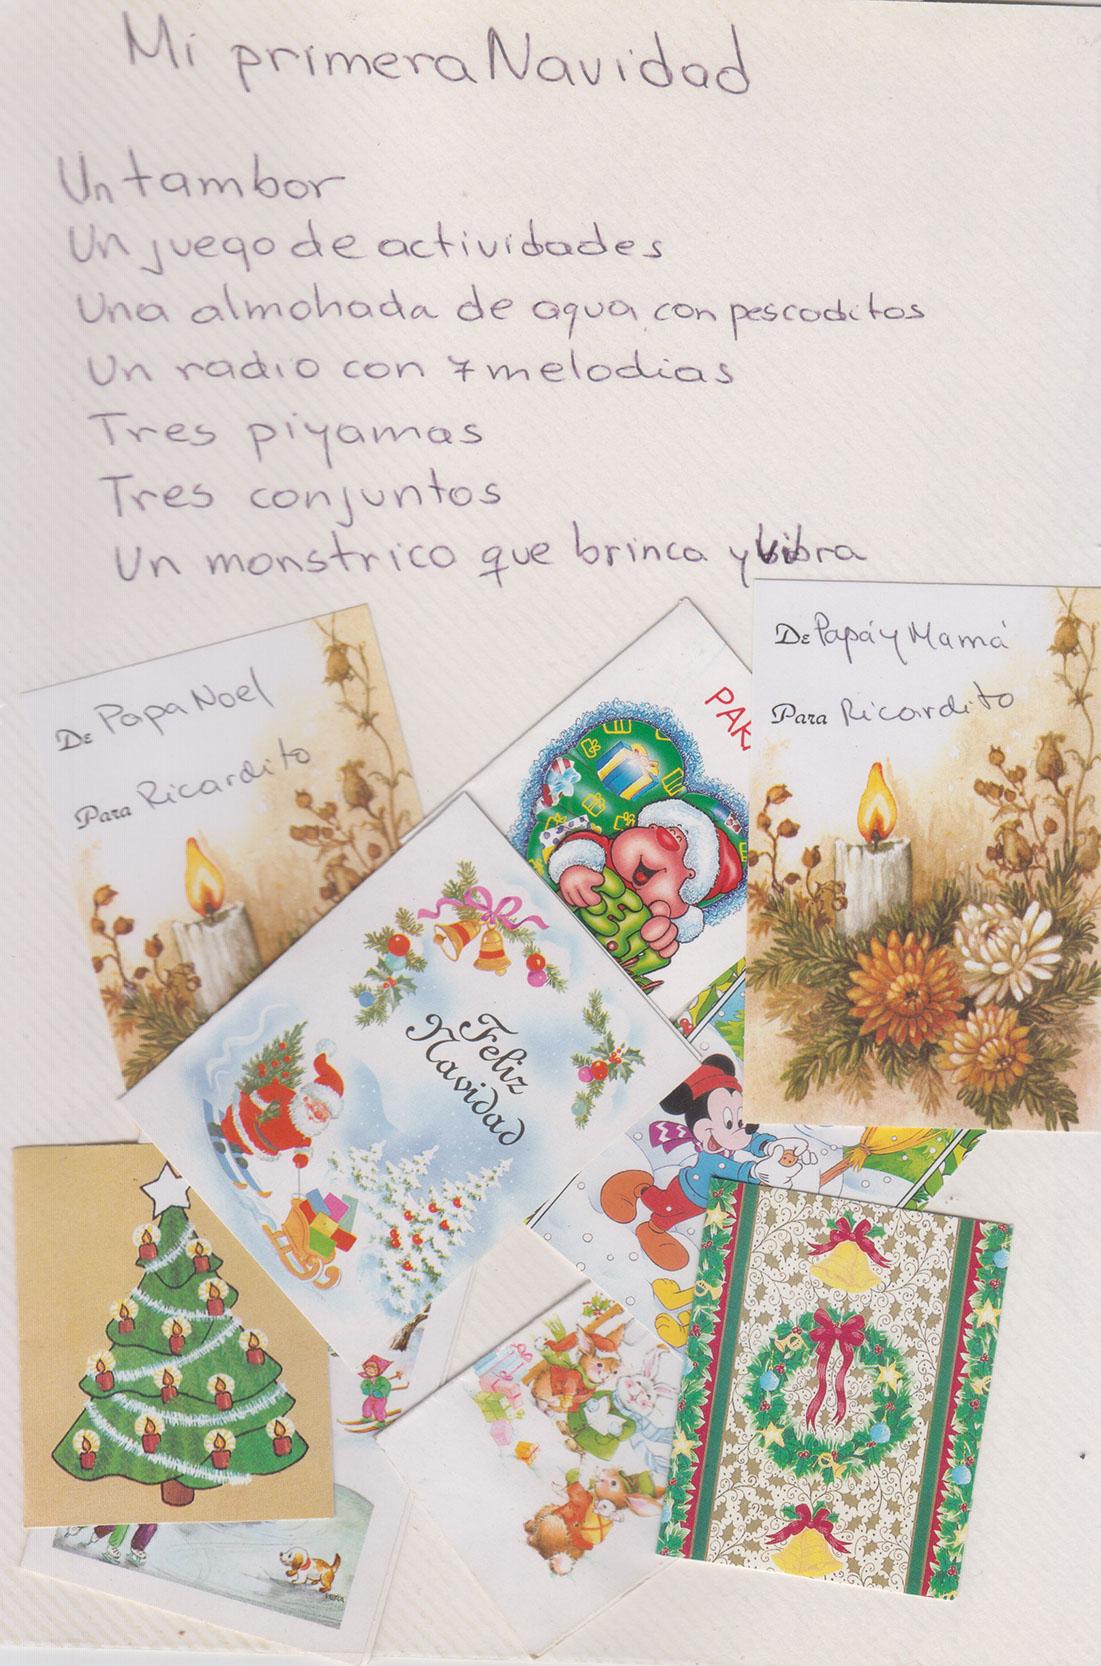 Mi primera Navidad
Un tambor
Un juego de actividades
Una almohada de agua con pescaditos
Un radio con 7 melodias
Tres piyamas
Tres conjuntos
Un monstrico que brinca y vibra
De Papa Noel
Para Ricardito
PAR
De Papá y Mamá
Para Ricardito
Feliz
Navidad